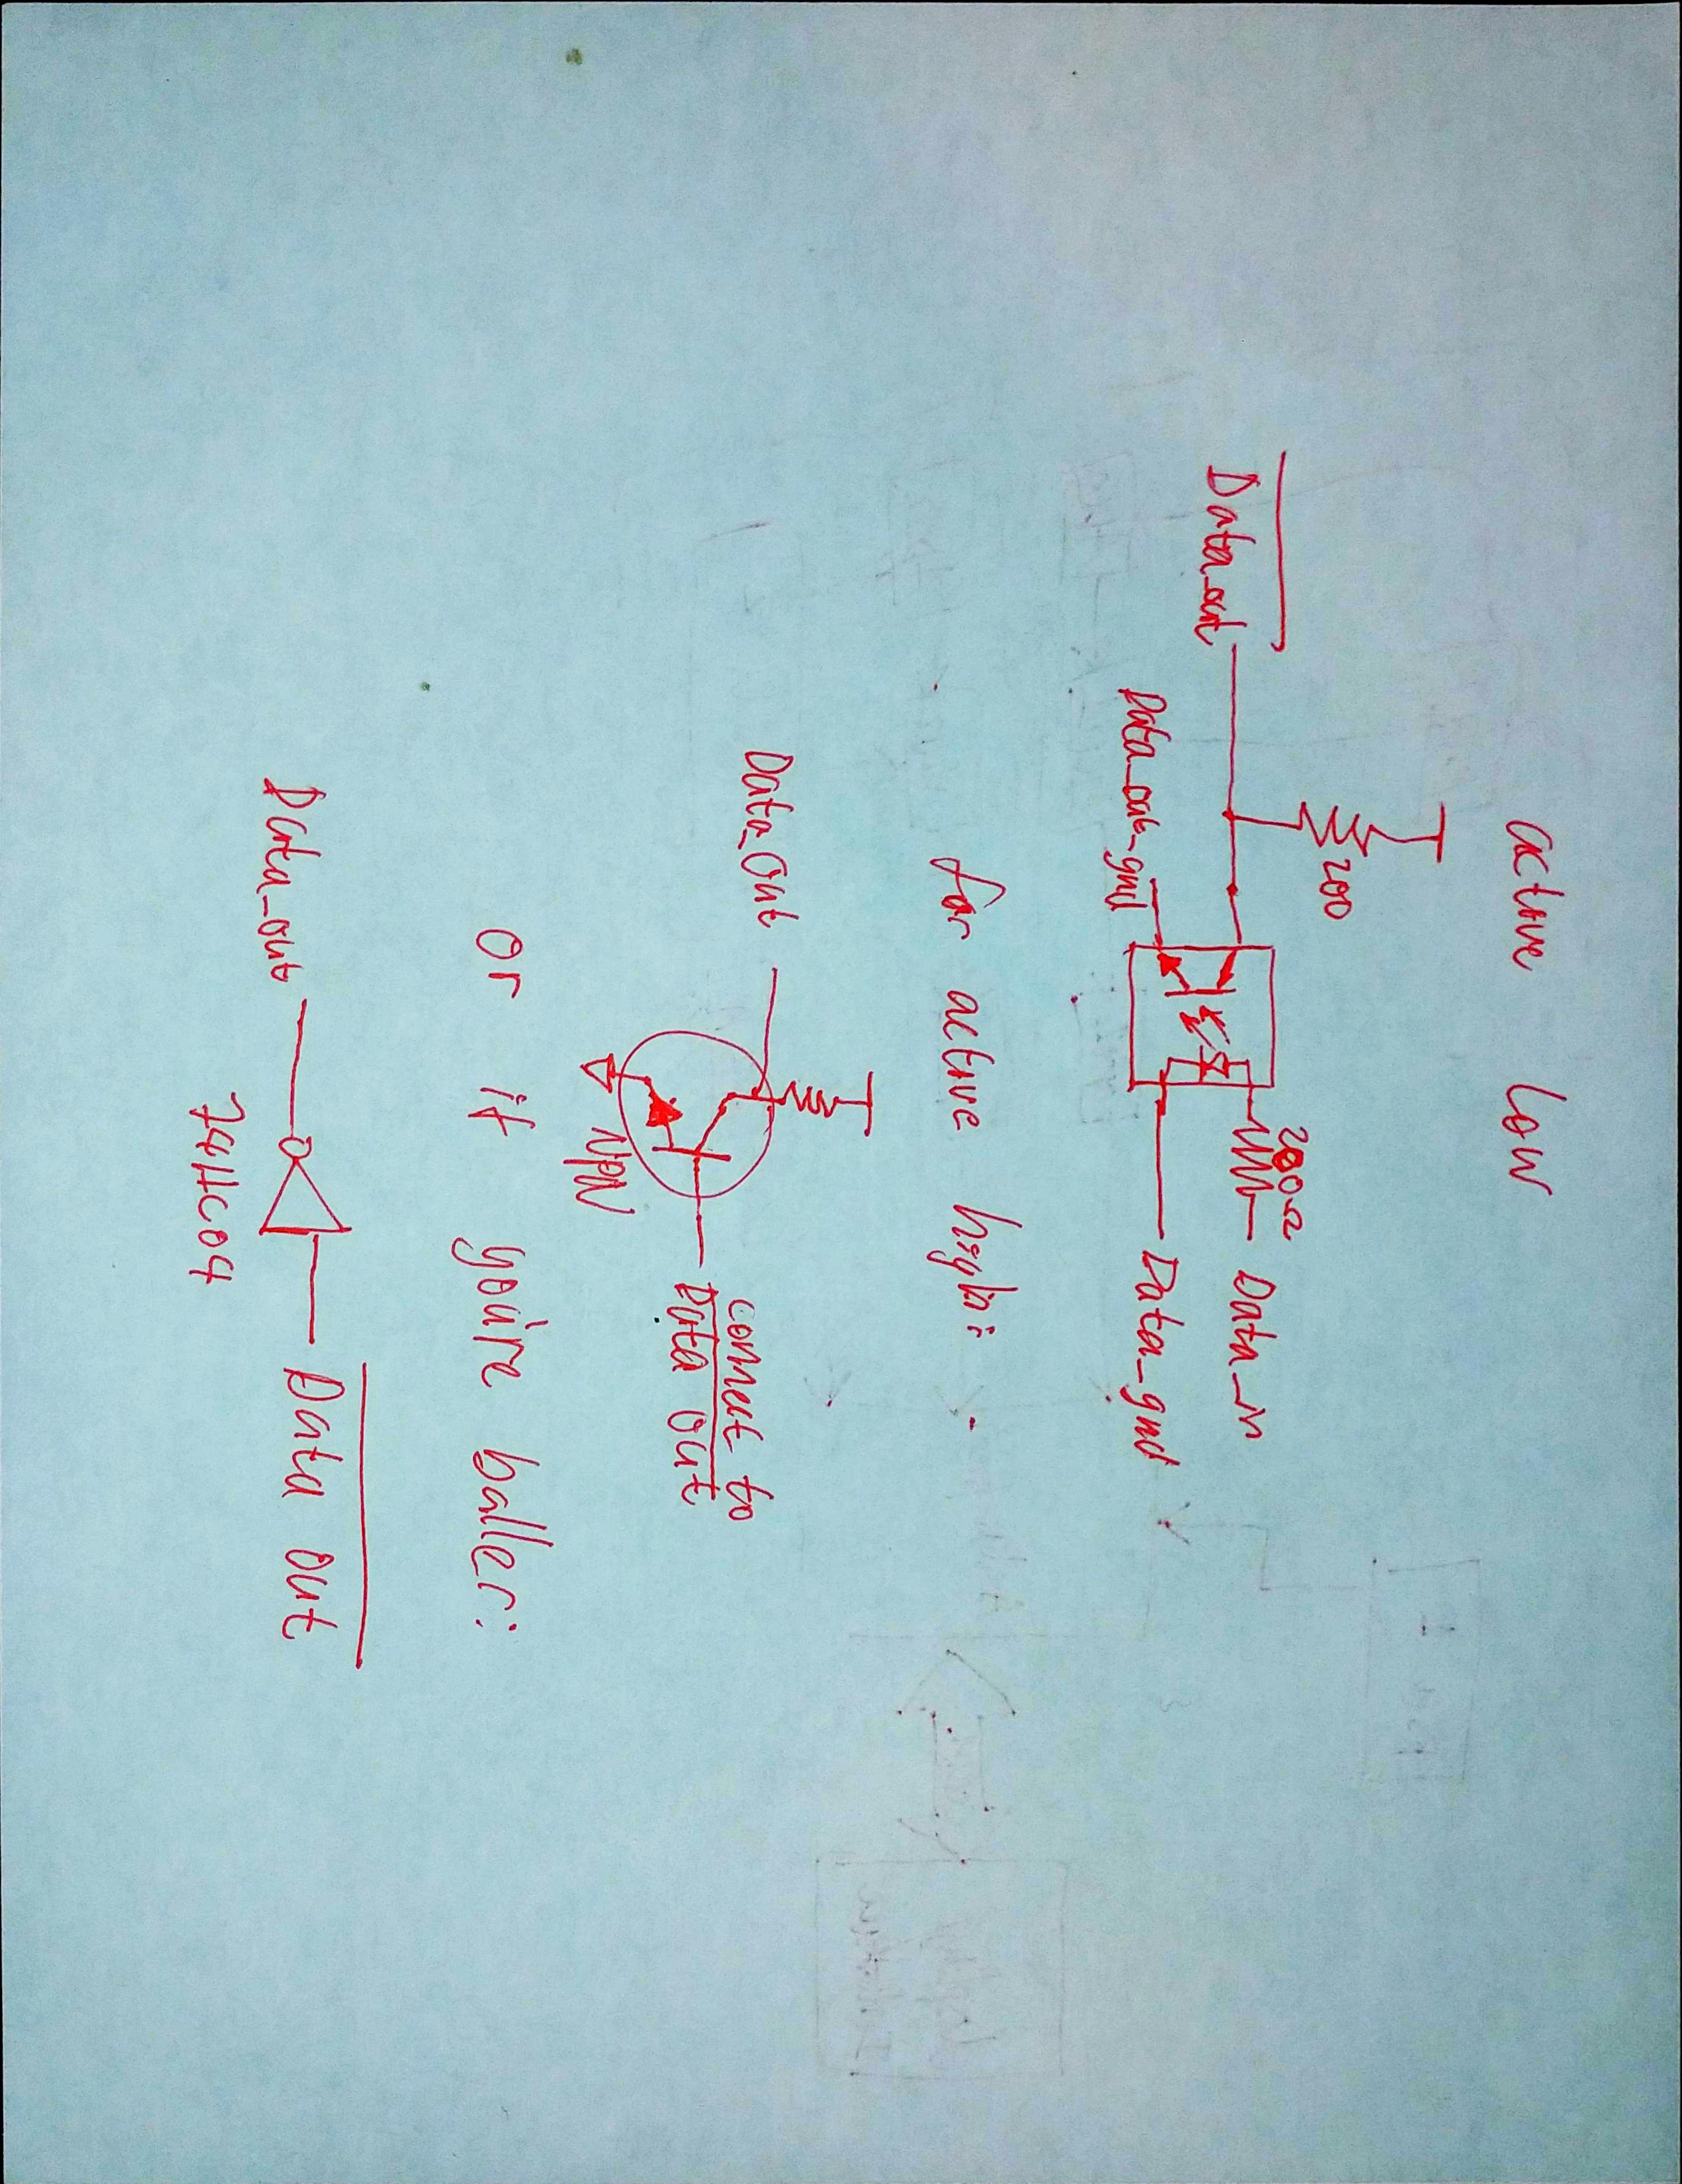 active low
200
200Ω
Data_out
Data_in
Data_out_gnd
Data_gnd
for active high:
Data_out
connect to
Data out
NPN
or if you're baller:
Data_out
Data out
74HC04